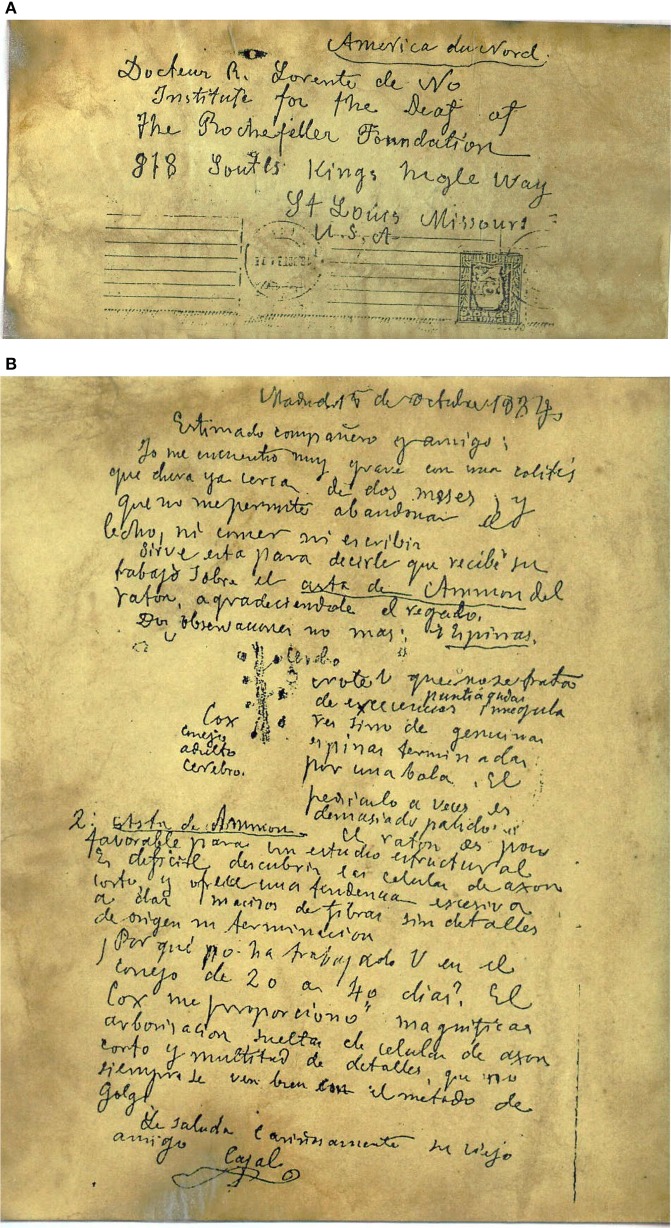 A
America du Nord.
Docteur R. Lorente de No
Institute for the Deaf of
The Rochefeller Foundation
818 South Kings Way
St Louis Missouri
U.S.A
B
Madrid 15 de octubre 1934
Estimado compañero y amigo:
Yo me encuentro muy grave con una colitis
que dura ya cerca de dos meses y
que no me permite abandonar el
lecho, ni comer ni escribir
Sirve esta para decirle que recibí su
trabajo sobre el asta de Ammon del
raton, agradeciendole el regado.
Dos observaciones no mas: 1ª Espinas.
Cerebro
Cox
conejo
adulto
cerebro.
note V que no se trata
de excrecencias puntiagudas irregula
res sino de genuinas
espinas terminadas
por una bola. El
pediculo a veces es
demasiado palido
2: Asta de Ammon. El raton es poco
favorable para un estudio estructural
Es dificil descubrir las celulas de axon
corto y ofrece una tendencia excesiva
a dar macisos de fibras sin detalles
de origen ni terminacion
¿Por qué no ha trabajado V en el
conejo de 20 a 40 dias? El
Cox me proporciono magnificas
arborisacion suelta de celulas de axon
corto y multitud de detalles, que no
siempre se ven bien con el metodo de
Golgi
Le saluda cariñosamente su viejo
amigo
Cajal